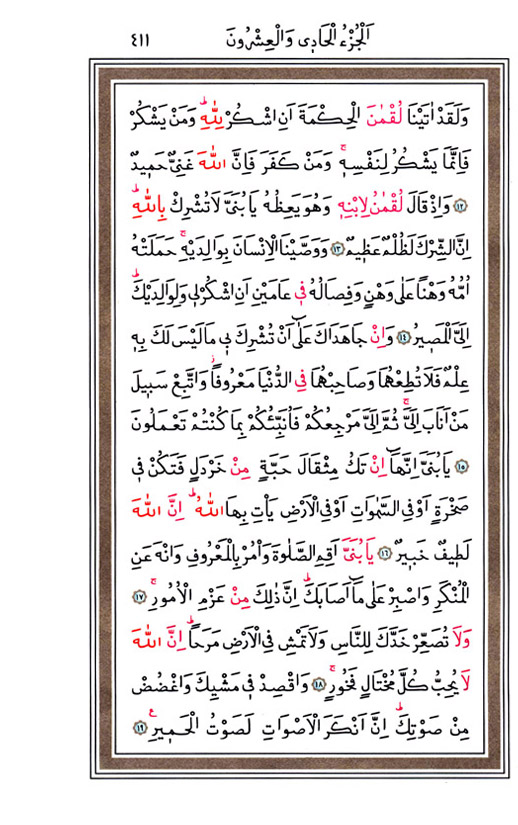 اَلْجُزْءُ الْحَادِى وَالْعِشْرُونَ ٤١١
وَلَقَدْ اٰتَيْنَا لُقْمٰنَ الْحِكْمَةَ اَنِ اشْكُرْ لِلّٰهِۜ وَمَنْ يَشْكُرْ
فَاِنَّمَا يَشْكُرُ لِنَفْسِه۪ۚ وَمَنْ كَفَرَ فَاِنَّ اللّٰهَ غَنِىٌّ حَم۪يدٌ
﴿١٢﴾ وَاِذْ قَالَ لُقْمٰنُ لِابْنِه۪ وَهُوَ يَعِظُهُ يَا بُنَىَّ لَا تُشْرِكْ بِاللّٰهِۜ
اِنَّ الشِّرْكَ لَظُلْمٌ عَظ۪يمٌ ﴿١٣﴾ وَوَصَّيْنَا الْاِنْسَانَ بِوَالِدَيْهِۚ حَمَلَتْهُ
اُمُّهُ وَهْنًا عَلٰى وَهْنٍ وَفِصَالُهُ ف۪ى عَامَيْنِ اَنِ اشْكُرْ ل۪ى وَلِوَالِدَيْكَۜ
اِلَىَّ الْمَص۪يرُ ﴿١٤﴾ وَاِنْ جَاهَدَاكَ عَلٰٓى اَنْ تُشْرِكَ ب۪ى مَا لَيْسَ لَكَ بِه۪
عِلْمٌ فَلَا تُطِعْهُمَا وَصَاحِبْهُمَا فِى الدُّنْيَا مَعْرُوفًاۘ وَاتَّبِعْ سَب۪يلَ
مَنْ اَنَابَ اِلَىَّۚ ثُمَّ اِلَىَّ مَرْجِعُكُمْ فَاُنَبِّئُكُمْ بِمَا كُنْتُمْ تَعْمَلُونَ
﴿١٥﴾ يَا بُنَىَّ اِنَّهَٓا اِنْ تَكُ مِثْقَالَ حَبَّةٍ مِنْ خَرْدَلٍ فَتَكُنْ ف۪ى
صَخْرَةٍ اَوْ فِى السَّمٰوَاتِ اَوْ فِى الْاَرْضِ يَأْتِ بِهَا اللّٰهُۜ اِنَّ اللّٰهَ
لَط۪يفٌ خَب۪يرٌ ﴿١٦﴾ يَا بُنَىَّ اَقِمِ الصَّلٰوةَ وَأْمُرْ بِالْمَعْرُوفِ وَانْهَ عَنِ
الْمُنْكَرِ وَاصْبِرْ عَلٰى مَٓا اَصَابَكَۜ اِنَّ ذٰلِكَ مِنْ عَزْمِ الْاُمُورِۚ ﴿١٧﴾
وَلَا تُصَعِّرْ خَدَّكَ لِلنَّاسِ وَلَا تَمْشِ فِى الْاَرْضِ مَرَحًاۜ اِنَّ اللّٰهَ
لَا يُحِبُّ كُلَّ مُخْتَالٍ فَخُورٍۚ ﴿١٨﴾ وَاقْصِدْ ف۪ى مَشْيِكَ وَاغْضُضْ
مِنْ صَوْتِكَۜ اِنَّ اَنْكَرَ الْاَصْوَاتِ لَصَوْتُ الْحَم۪يرِ۟ ﴿١٩﴾